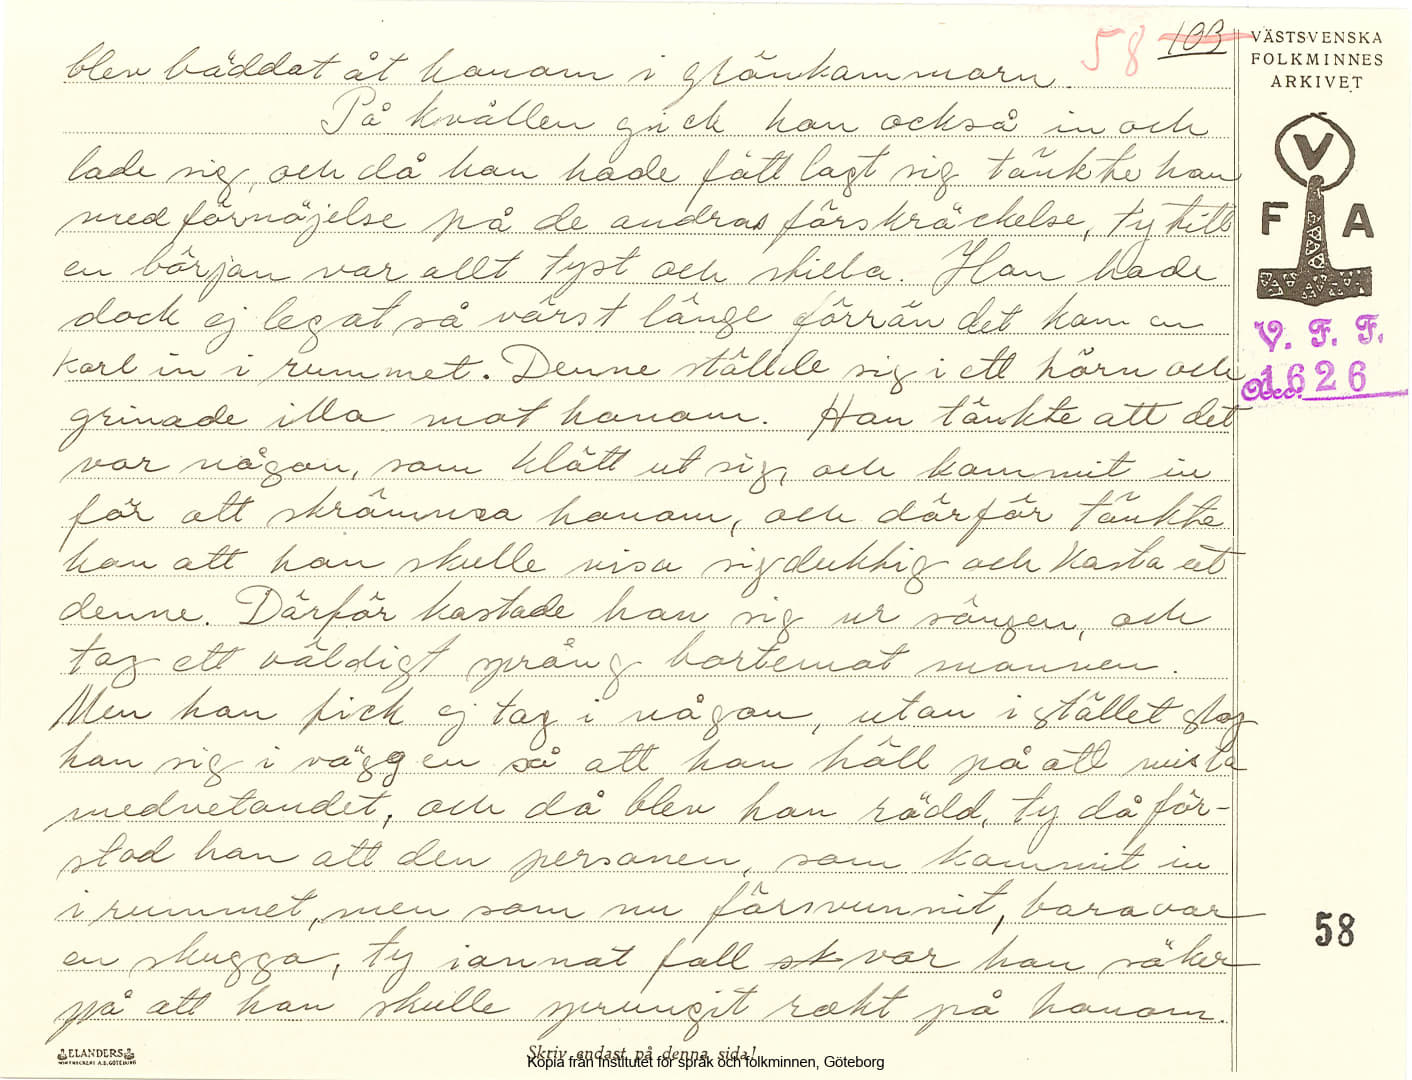 58 103
VÄSTSVENSKA
FOLKMINNES
ARKIVET
V
F A
V. F. F.
Acc. 1626
blev bäddat åt honom i grönkammarn.
På kvällen gick han också in och
lade sig, och då han hade fått lagt sig tänkte han
med förnöjelse på de andras förskräckelse, ty till
en början var allt tyst och stilla. Han hade
dock ej legat så värst länge förrän det kom en
karl in i rummet. Denne ställde sig i ett hörn och
grinade illa mot honom. Han tänkte att det
var någon, som klätt ut sig, och kommit in
för att skrämma honom, och därför tänkte
han att han skulle visa sig duktig och kasta ut
denne. Därför kastade han sig ur sängen, och
tog ett väldigt språng bortemot mannen.
Men han fick ej tag i någon, utan i stället slog
han sig i väggen så att han höll på att mista
medvetandet, och då blev han rädd, ty då för-
stod han att den personen, som kommit in
i rummet, men som nu försvunnit, bara var
en skugga, ty i annat fall sk var han säker
på att han skulle sprungit rakt på honom.
58
ELANDERS
Skriv endast på denna sida!
Kopia från Institutet för språk och folkminnen, Göteborg